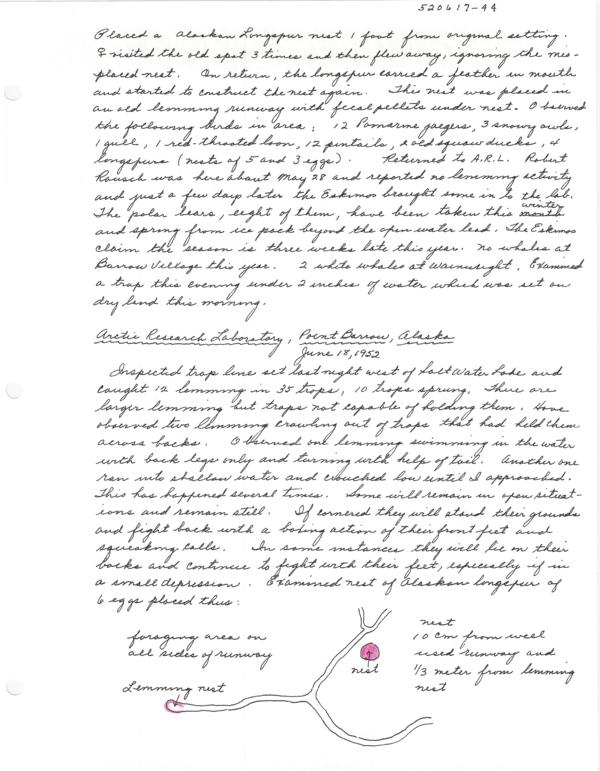 520617-44
Placed a Alaskan Longspur nest 1 foot from original setting.
♀ visited the old spot 3 times and then flew away, ignoring the mis-
placed nest. On return, the longspur carried a feather in mouth
and started to construct the nest again. This nest was placed in
an old lemming runway with fecal pellets under nest. Observed
the following birds in area; 12 Pomarine jaegers, 3 snowy owls,
1 gull, 1 red-throated loon, 12 pintails, oldsquaw ducks, 4
longspurs (nests of 5 and 3 eggs). Returned to A.R.L. Robert
Rausch was here about May 28 and reported no lemming activity
and just a few days later the Eskimos brought some in to the lab.
The polar bears, eight of them, have been taken this winter
and spring from ice pack beyond the open water lead. The Eskimos
claim the season is three weeks late this year. No whales at
Barrow Village this year. 2 white whales at Wainwright. Examined
a trap this evening under 2 inches of water which was set on
dry land this morning.
Arctic Research Laboratory, Point Barrow, Alaska
June 18, 1952
Inspected trap line set last night west of Salt Water Lake and
caught 12 lemming in 35 traps, 10 traps sprung. There are
larger lemming but traps not capable of holding them. Have
observed two lemming crawling out of traps that had held them
across backs. Observed one lemming swimming in the water
with back legs only and turning with help of tail. Another one
ran into shallow water and crouched low until I approached.
This has happened several times. Some will remain in open situat-
ions and remain still. If cornered they will stand their grounds
and fight back with a boxing action of their front feet and
squeaking calls. In some instances they will lie on their
backs and continue to fight with their feet, especially if in
a small depression. Examined nest of Alaskan longspur of
6 eggs placed thus:
foraging area on
all sides of runway
Lemming nest
nest
nest
10 cm from well
used runway and
1/3 meter from lemming
nest